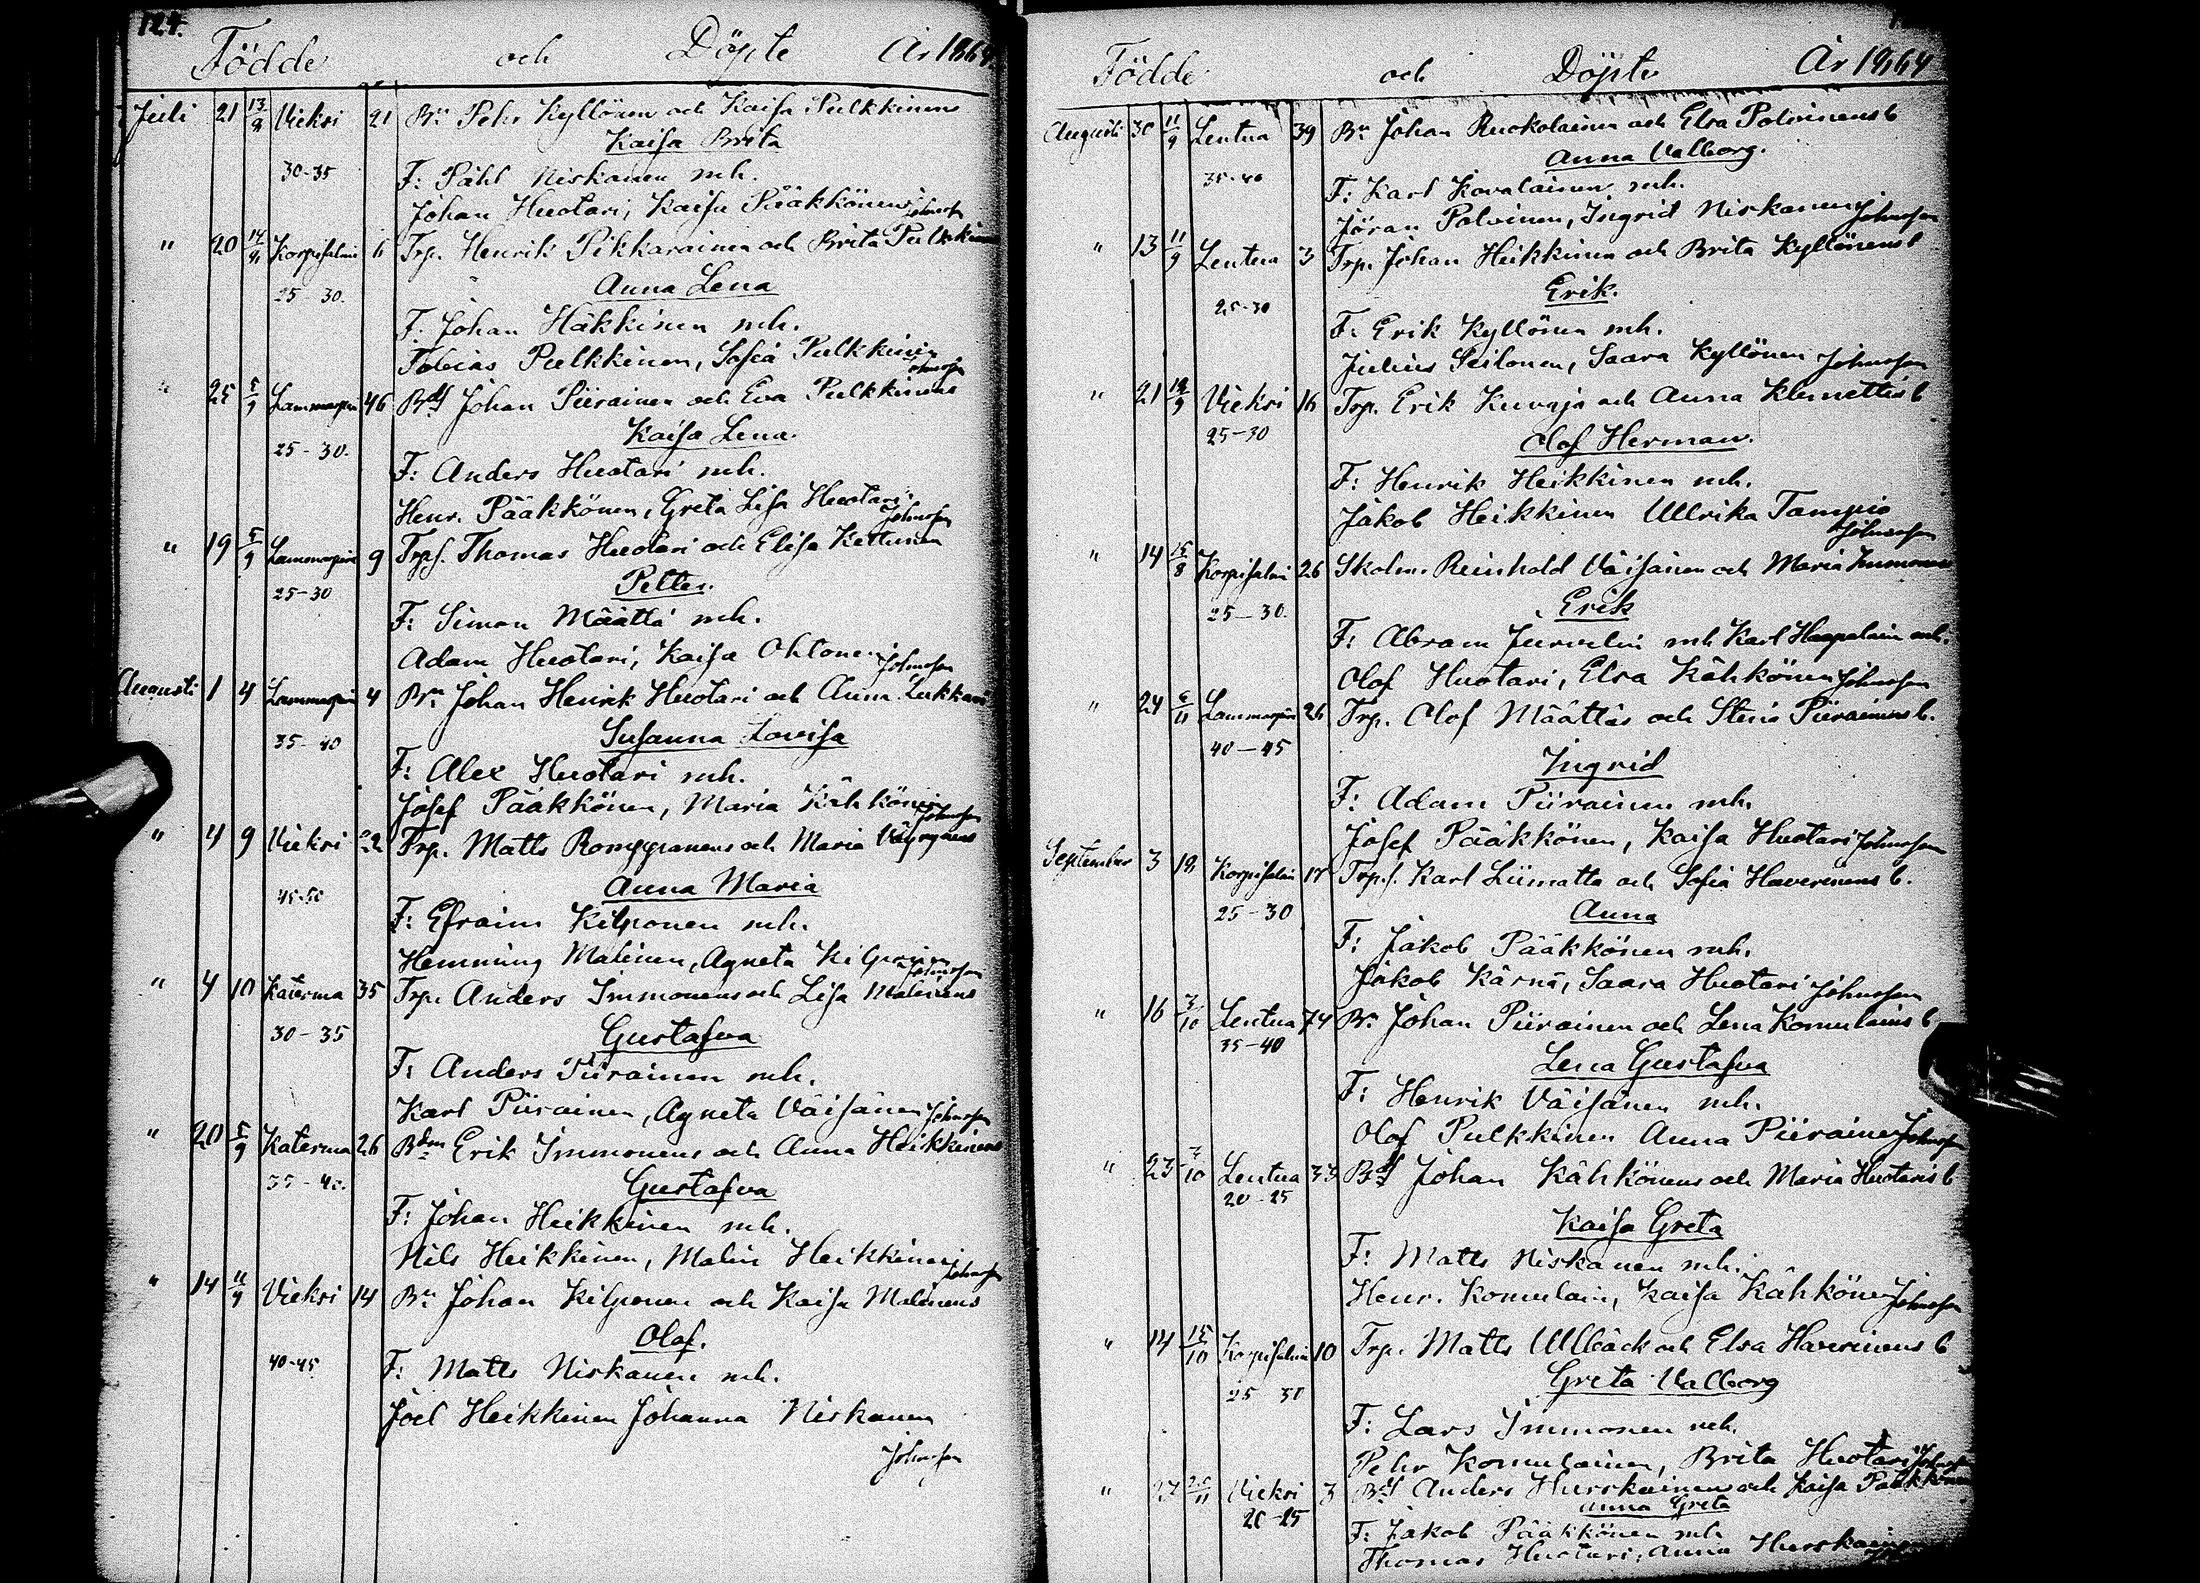 124.
Födde och Döpte År 1864.
Juli 21 13/8 Vieksi 21 Bn Pehr Kyllönen och Kaisa Pulkkinens
Kaisa Brita
30-35 F: Påhl Niskanen mh.
Johan Huotari, Kaisa Pääkkönen Johnsson
" 20 14/8 Korpisalmi 6 Trp. Henrik Pikkarainen och Brita Pulkkinen
Anna Lena
25-30. F: Johan Häkkinen mh.
Tobias Pulkkinen, Sofia Pulkkinen
Johnsson
" 25 5/9 Lammasperä 46 Bdss Johan Piirainen och Eva Pulkkinens
Kaisa Lena.
25-30. F: Anders Huotari mh.
Henr. Pääkkönen, Greta Lisa Huotari
Johnsson
" 19 5/9 Lammasperä 9 Trps. Thomas Huotari och Elisa Kettunen
Petter.
25-30 F: Simon Määttä mh.
Adam Huotari, Kaisa Ohtonen Johnsson
Augusti 1 4 Lammasperä 4 Bn Johan Henrik Huotari och Anna Lukkari
Susanna Lovisa
35-40 F: Alex Huotari mh.
Josef Pääkkönen, Maria Kähkönen
Johnsson
" 4 9 Vieksi 22 Trp. Matts Romppanens och Maria Väyrynens
Anna Maria
45-50 F: Efraim Kilponen mh.
Hemming Malinen, Agneta Kilponen
Johnsson
" 4 10 Katerma 35 Trp. Anders Immonens och Lisa Malinens
Gustafva
30-35 F: Anders Piirainen mh.
Karl Piirainen, Agneta Väisänen Johnsson
" 20 5/9 Katerma 26 Erik Immonens och Anna Heikkinens
Gustafva
35-40. F: Johan Heikkinen mh.
Nils Heikkinen, Malin Heikkinen
Johnsson
" 14 11/9 Vieksi 14 Bn Johan Kilponen och Kaisa Malinens
Olof.
40-45 F: Matts Niskanen mh.
Joel Heikkinen Johanna Niskanen
Johnsson
Födde och Döpte År 1864
Augusti 30 11/9 Lentua 39 Bn Johan Ruokolainen och Elsa Polvinens b
Anna Valborg.
35-40 F: Karl Kovalainen mh.
Jöran Polvinen, Ingrid Niskanen Johnsson
" 13 11/9 Lentua 3 Trp. Johan Heikkinen och Brita Kyllönens b
Erik.
25-30 F: Erik Kyllönen mh.
Julius Seilonen, Saara Kyllönen Johnsson
" 21 Vieksi 16 Trp. Erik Kuvaja och Anna Klemettis b
25-30 Olof Herman.
F: Henrik Heikkinen mh.
Jakob Heikkinen Ullrika Tampio
Johnsson
" 14 15/8 Korpisalmi 26 Skolm. Reinhold Väisänen och Maria Immonen
Erik
25-30. F: Abram Jurvelin mh Karl Haapalain mh.
Olof Huotari, Elsa Kähkönen Johnsson
" 24 6/11 Lammasperä 26 Trp. Olof Määttäs och Stina Piirainens b.
40-45 Ingrid
F: Adam Piirainen mh.
Josef Pääkkönen, Kaisa Huotari Johnsson
September 3 18 Korpisalmi 17 Trps. Karl Liimatta och Sofia Haverinens b.
25-30 Anna
F: Jakob Pääkkönen mh.
Jakob Kärnä, Saara Huotari Johnsson
" 16 3/10 Lentua 74 Bn Johan Piirainen och Lena Komulains b
35-40 Lena Gustafva
F: Henrik Väisänen mh.
Olof Pulkkinen Anna Piirainen Johnsson
" 23 3/10 Lentua 33 Bdss Johan Kähkönens och Maria Huotaris b
20-25 Kaisa Greta
F: Matts Niskanen mh.
Henr. Komulain, Kaisa Kähkönen Johnsson
" 14 15/10 Korpisalmi 10 Trp. Matts Ullbäck och Elsa Haverinens b
25 30 Greta Valborg
F: Lars Immonen mh.
Pehr Komulainen, Brita Huotari Johnsson
" 27 Vieksi 3 Anders Hurskainen och Kaisa Pääkkönen
20-25 Anna Greta
F: Jakob Pääkkönen mh
Thomas Huotari, Anna Hurskainen